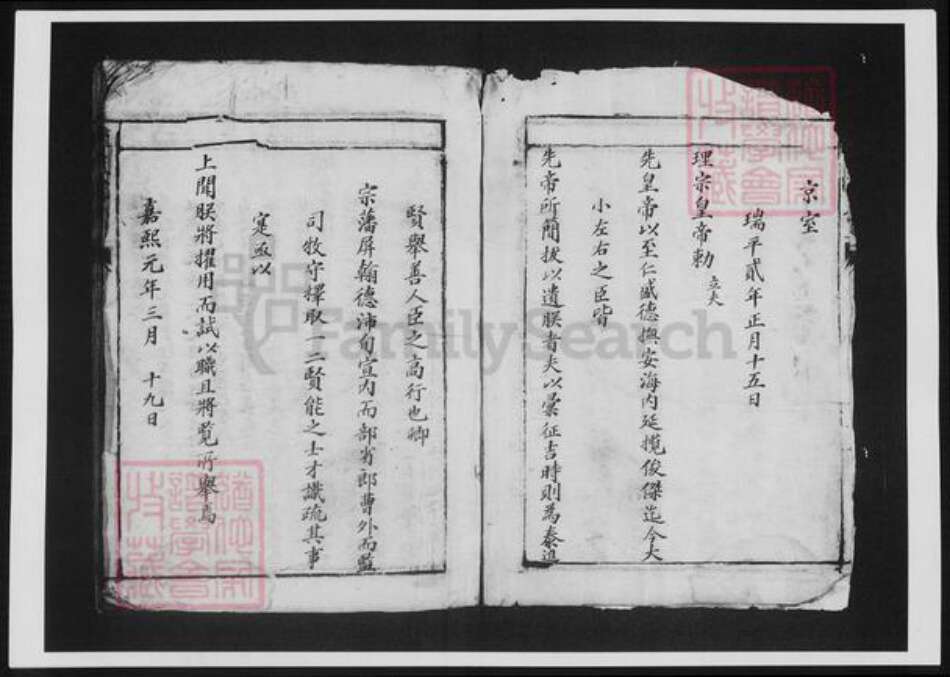 京室
瑞平貳年正月十五日
理宗皇帝勅 立夫
先皇帝以至仁盛德撫安海內延攬俊傑迄今大
小左右之臣皆
先帝所簡拔以遺朕者夫以彙征吉時則為泰進
賢舉善人臣之高行也卿
宗藩屏翰德沛旬宣內而部省郎曹外而監
司牧守擇取一二賢能之士才識疏其事
寔亟以
上聞朕將擢用而試以職且將覽所舉焉
嘉熙元年三月 十九日
FamilySearch